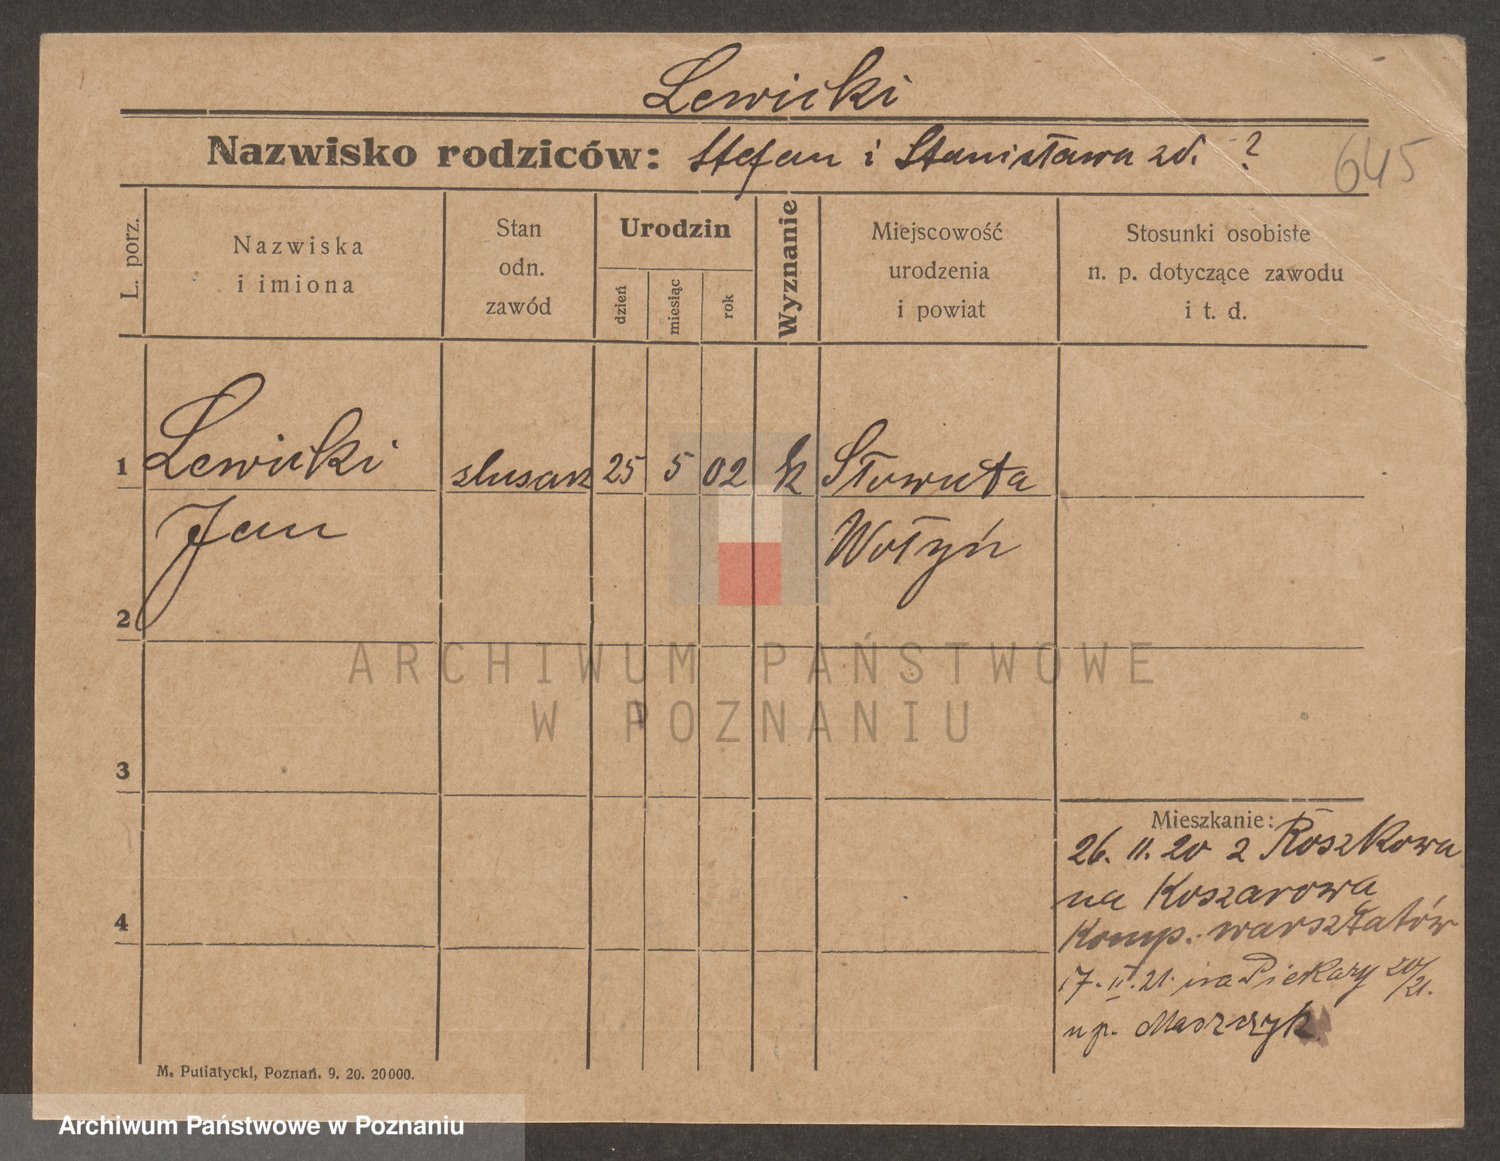 Lewicki
Nazwisko rodziców: Stefan i Stanisława zd. ?
645
L. porz.
Nazwiska
i imiona
Stan
odn.
zawód
Urodzin
dzień
miesiąc
rok
Wyznanie
Miejscowość
urodzenia
i powiat
Stosunki osobiste
n. p. dotyczące zawodu
i t. d.
1 Lewicki slusarz 25 5 02 k Sławuta
Jan Wołyń
2
ARCHIWUM PAŃSTWOWE
W POZNANIU
3
Mieszkanie:
26. 11. 20 z Roszkowa
na Koszarowa
4
Komp. warsztatów
17. II. 21. na Piekary 20/21.
u p. Maszczyk
M. Putiatycki, Poznań. 9. 20. 20000.
Archiwum Państwowe w Poznaniu